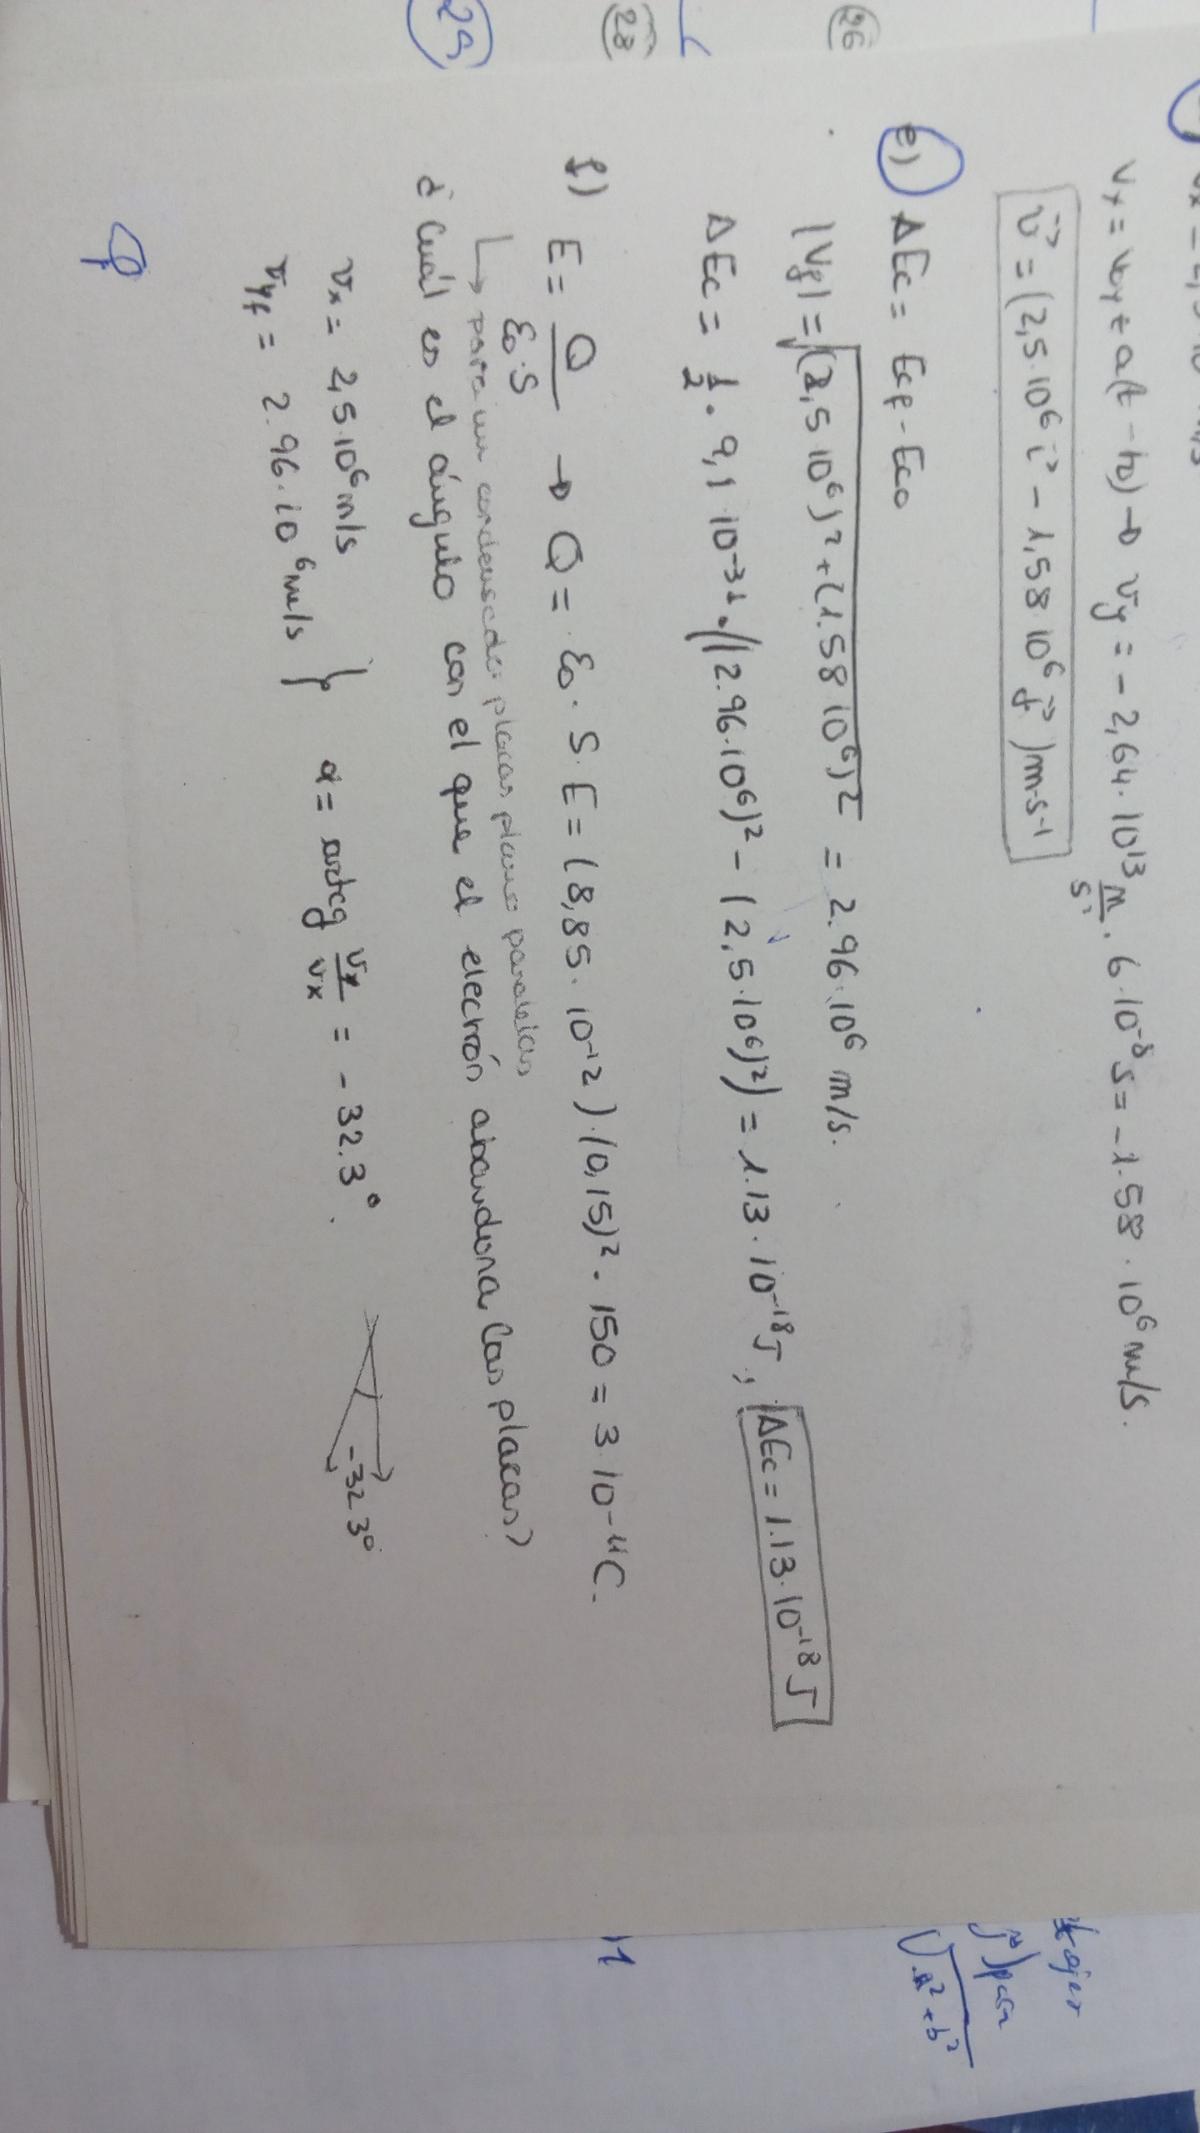 Vy = Voy + a(t - t0) → Vy = -2,64·10¹³ m/s² · 6·10⁻⁸ s = -1.58 · 10⁶ m/s.
v⃗ = (2,5·10⁶ i⃗ - 1,58·10⁶ j⃗) m·s⁻¹
e) ΔEc = Ecf - Eco
|Vf| = √(2,5·10⁶)² + (1.58 10⁶)² = 2.96·10⁶ m/s.
ΔEc = 1/2 · 9,1 10⁻³¹ · ((2.96·10⁶)² - (2,5·10⁶)²) = 1.13·10⁻¹⁸ J ; ΔEc = 1.13·10⁻¹⁸ J
f) E = Q/ε0·S → Q = ε0 · S · E = (8,85·10⁻¹²)·(0,15)² · 150 = 3·10⁻¹¹ C.
↳ para un condensador placas plano paralelas
¿Cuál es el ángulo con el que el electrón abandona las placas?
vx = 2,5·10⁶ m/s
vyf = 2.96·10⁶ m/s } α = arctg vy/vx = -32.3°.
-32.3°
26
28
29
ejer
j⃗) para
√a² + b²